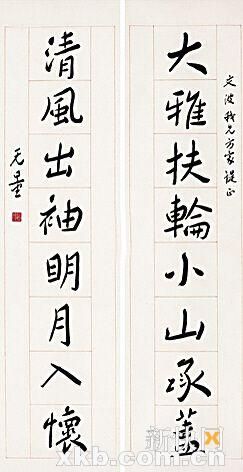 定波我兄方家諟正
大雅扶輪小山承蓋
清風出袖明月入懷
无量
xkb.com.cn